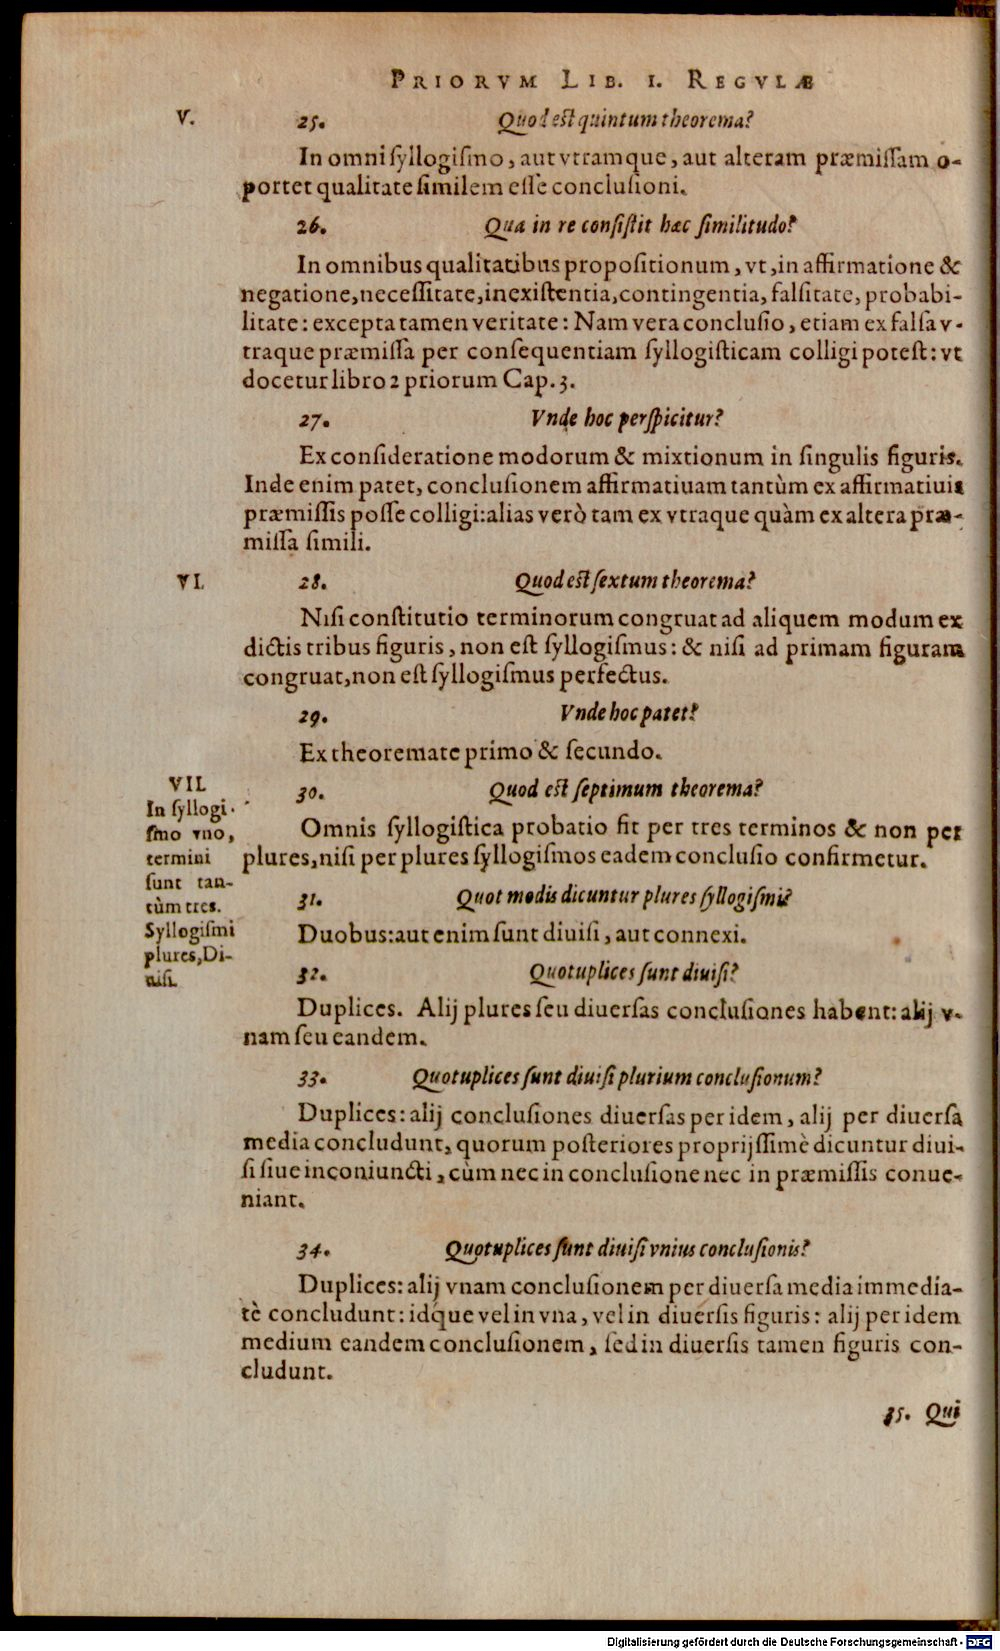 PRIORVM LIB. I. REGVLÆ
V.
25. Quod est quintum theorema?
In omni syllogismo, aut vtramque, aut alteram præmissam o-
portet qualitate similem esse conclusioni.
26. Qua in re consistit hæc similitudo?
In omnibus qualitatibus propositionum, vt, in affirmatione &
negatione, necessitate, inexistentia, contingentia, falsitate, probabi-
litate: excepta tamen veritate: Nam vera conclusio, etiam ex falsa v-
traque præmissa per consequentiam syllogisticam colligi potest: vt
docetur libro 2 priorum Cap. 3.
27. Vnde hoc perspicitur?
Ex consideratione modorum & mixtionum in singulis figuris.
Inde enim patet, conclusionem affirmatiuam tantùm ex affirmatiuis
præmissis posse colligi: alias verò tam ex vtraque quàm ex altera præ-
missa simili.
VI.
28. Quod est sextum theorema?
Nisi constitutio terminorum congruat ad aliquem modum ex
dictis tribus figuris, non est syllogismus: & nisi ad primam figuram
congruat, non est syllogismus perfectus.
29. Vnde hoc patet?
Ex theoremate primo & secundo.
VII.
In syllogi-
smo vno,
termini
sunt tan-
tùm tres.
Syllogismi
plures, Di-
uisi.
30. Quod est septimum theorema?
Omnis syllogistica probatio fit per tres terminos & non per
plures, nisi per plures syllogismos eadem conclusio confirmetur.
31. Quot modis dicuntur plures syllogismi?
Duobus: aut enim sunt diuisi, aut connexi.
32. Quotuplices sunt diuisi?
Duplices. Alij plures seu diuersas conclusiones habent: alij v-
nam seu eandem.
33. Quotuplices sunt diuisi plurium conclusionum?
Duplices: alij conclusiones diuersas per idem, alij per diuersa
media concludunt, quorum posteriores proprijssimè dicuntur diui-
si siue inconiuncti, cùm nec in conclusione nec in præmissis conue-
niant.
34. Quotuplices sunt diuisi vnius conclusionis?
Duplices: alij vnam conclusionem per diuersa media immedia-
tè concludunt: idque vel in vna, vel in diuersis figuris: alij per idem
medium eandem conclusionem, sed in diuersis tamen figuris con-
cludunt.
35. Qui
Digitalisierung gefördert durch die Deutsche Forschungsgemeinschaft - DFG